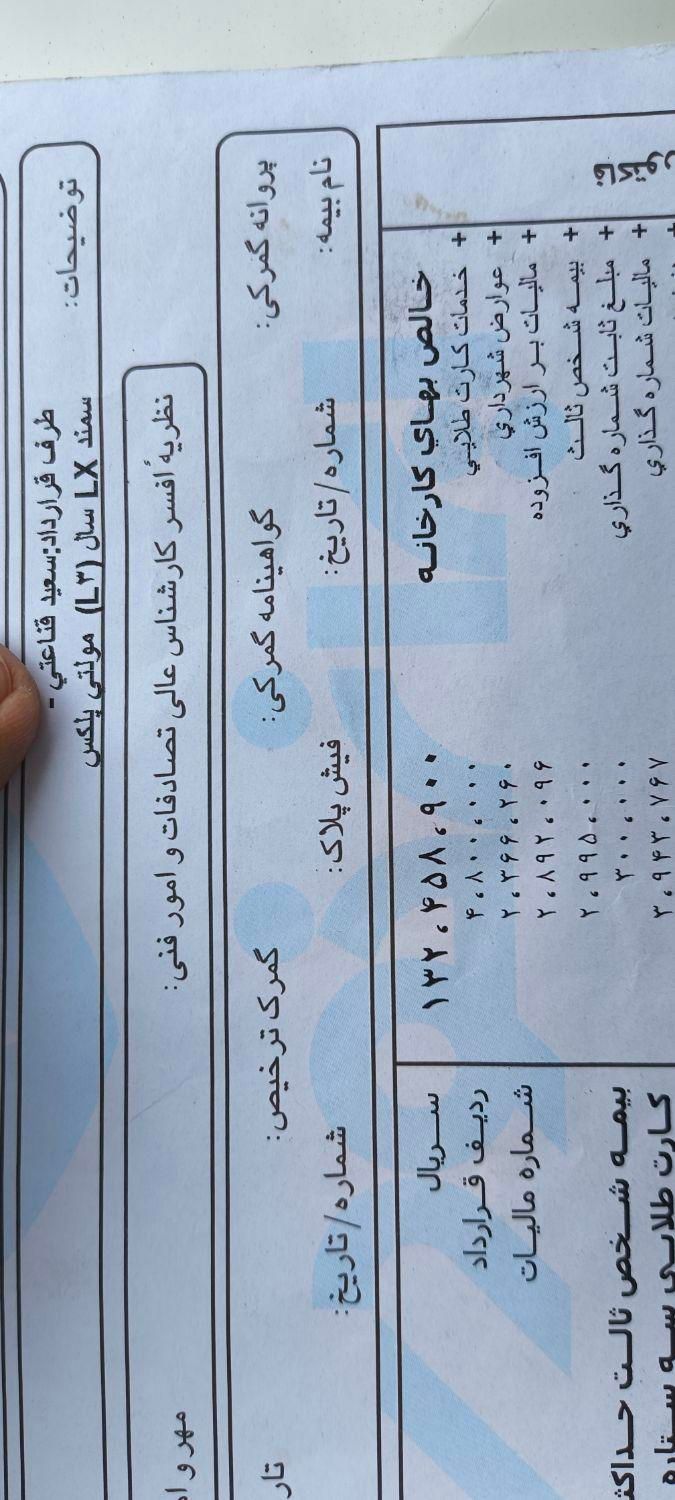 توضیحات:
طرف قرارداد:سعید قناعتي -
سمند LX سال (L۳) مولتي پلکس
نظریهٔ افسر کارشناس عالی تصادفات و امور فنی:
مهر و
پروانه گمرکی: گواهینامه گمرکی: گمرک ترخیص: تار
نام بیمه: شماره/تاریخ: فیش پلاک: شماره/تاریخ:
خالص بهاي کارخانه ۱۳۲،۴۵۸،۹۰۰ سریال
+ خدمات کارت طلایي ۴،۸۰۰،۰۰۰ ردیف قرارداد
+ عوارض شهرداري ۲،۳۶۶،۲۶۰ شماره مالیات
+ مالیات بر ارزش افزوده ۲،۸۹۲،۰۹۶
+ بیمه شخص ثالث ۲،۹۹۵،۰۰۰
+ مبلغ ثابت شماره گذاري ۳۰۰،۰۰۰ بیمه شخص ثالث
+ مالیات شماره گذاري ۳،۹۴۳،۷۶۷ کارت طلایي سه ستاره